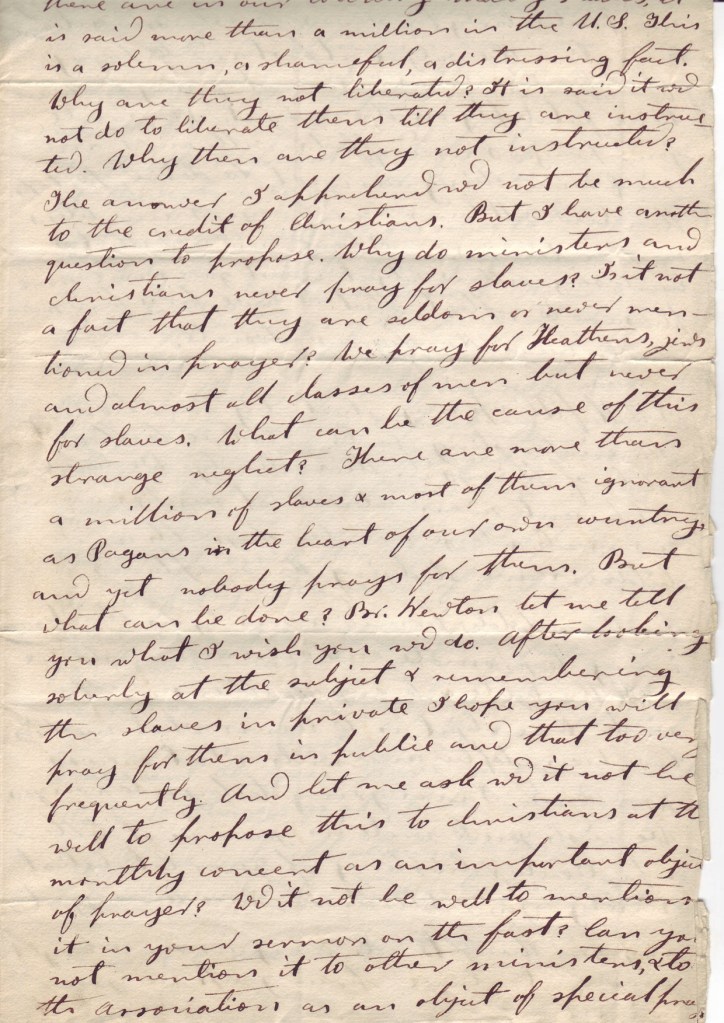 there are in our country many slaves, it
is said more than a million in the U.S. This
is a solemn, a shameful, a distressing fact.
Why are they not liberated? It is said it wd
not do to liberate them till they are instruc-
ted. Why then are they not instructed?
The answer I apprehend wd not be much
to the credit of Christians. But I have anoth
question to propose. Why do ministers and
christians never pray for slaves? Is it not
a fact that they are seldom or never men-
tioned in prayer? We pray for Heathens, jews
and almost all classes of men but never
for slaves. What can be the cause of this
strange neglect? There are more than
a million of slaves & most of them ignorant
as Pagans in the heart of our own country,
and yet nobody prays for them. But
what can be done? Br. Newton let me tell
you what I wish you wd do. After looking
soberly at the subject & remembering
the slaves in private I hope you will
pray for them in public and that too very
frequently. And let me ask wd it not be
well to propose this to christians at th
monthly concert as an important objec
of prayer? Wd it not be well to mention
it in your sermon on the fast? Can yo
not mention it to other ministers, & to
the association as an object of special pra